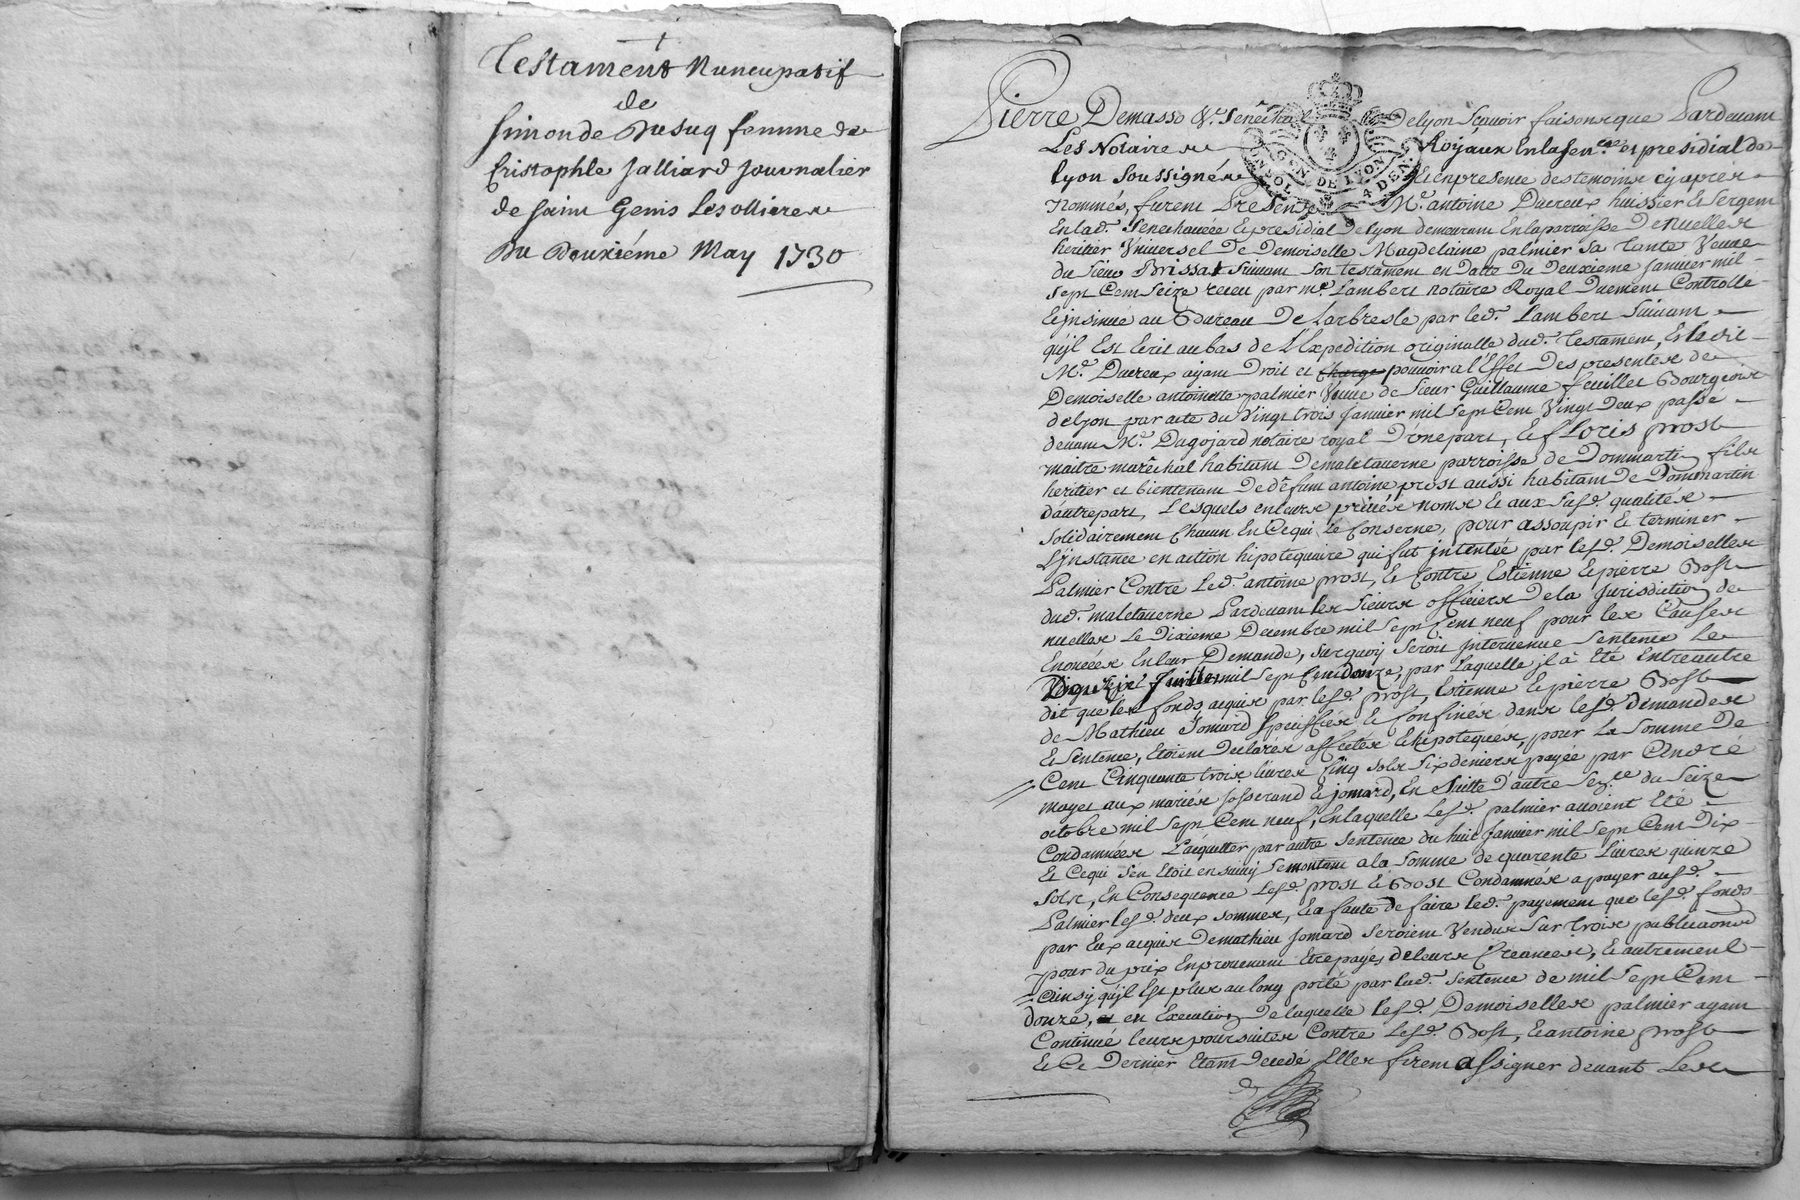 Testament Nuncupatif
de
Simonde Dusuq femme de
Cristophle Jalliard Journalier
de Saint Genis Lesollieres
Du Deuxiéme May 1730
Pierre Demasso Sénéchal Delyon Sçavoir faisons que Pardevant
Les Notaires Royaux En la Sen.ée et presidial de
lyon Soussignés Et en presence des temoins cy apres
Nommés, furent Presents M.e antoine Ducreux huissier Et Sergent
En lad. Senechaucée Et presidial de lyon demeurant En la parroisse De nuelles
heritier Universel De Demoiselle Magdelaine palmier Sa tante Veuve
du Sieur Brissat Suivant Son testament en Datte Du Deuxieme Janvier mil
Sept Cent Seize receu par m.e Lambert notaire Royal Duement Controllé
Et jnsinue au Bureau De Larbresle par led. Lambert Suivant
qu'jl Est Ecrit au bas de L'Expedition originalle dud. Testament, Et led.
M.e Ducreux ayant Droit et charge pouvoir a l'Effet Des presentes de
Demoiselle antoinette palmier Veuve de Sieur Guillaume feuillet Bourgeois
de lyon par acte du Vingt trois Janvier mil Sept Cent Vingt Deux passé
devant M.e Dagojard notaire royal D'une part, Et Floris prost
maitre maréchal habitant De maletaverne parroisse de Dommartin fils
heritier et bientenant De défunt antoine prost aussi habitant De Dommartin
Dautre part, Lesquels en leurs privés noms Et aux Susd. qualités
Solidairement Chacun En Ce qui le Conserne, pour assoupir Et terminer
L'jnstance en action hipotequaire qui fut jntentée par lesd. Demoiselles
Palmier Contre Led. antoine prost, Et Contre Estienne Et pierre Bost
dud. maletaverne Pardevant les Sieurs officiers De la Jurisdiction de
nuelles Le Dixieme Decembre mil Sept Cent neuf pour les Causes
Enoncées En leur Demande, Sur quoy Seroit jntervenue Sentence Le
Juillet mil Sept Cent douze, par Laquelle jl à Eté Entreautre
dit que les fonds acquis par lesd. prost, Estienne Et pierre Bost
de Mathieu Jomard Speciffiés Et Confinés dans lesd. demandes
Et Sentence, Etoient Declarés affectés Et hipotequés, pour La Somme De
Cent Cinquante trois livres Cinq Sols Six deniers payée par André
mayet aux mariés Josserand Et jomard, En Suitte d'autre Sen.ce du Seize
octobre mil Sept Cent neuf, En laquelle Lesd. palmier avoient Eté
Condamnées L'acquitter par autre Sentence du huit Janvier mil Sept Cent Dix
Et Ce qui S'en Etoit ensuivy Se montant a la Somme de quarente Livres quinze
Sols, En Consequence Lesd. prost Et Bost Condamnés a payer ausd.
Palmier lesd. deux Sommes, Et a faute de faire led. payement que lesd. fonds
par Eux acquis De mathieu Jomard Seroient Vendus Sur trois publications
pour du prix En provenant Etre payés de leurs Creances, Et autrement
Ainsy qu'jl Est plus au long porté par lad. Sentence de mil Sept Cent
douze, et en Execution De laquelle lesd. Demoiselles palmier ayant
Continué leurs poursuites Contre Lesd. Bost, Et antoine prost
Et Ce Dernier Etant decedé Elles firent assigner devant Les